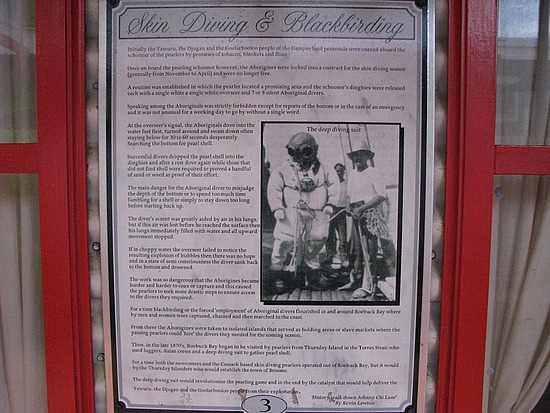 Skin Diving & Blackbirding
Initially the Yawuru, the Djugan and the Goolarbooloo people of the Dampierland peninsula were coaxed aboard the
schooner of the pearlers by promises of tobacco, blankets and flour.
Once on board the pearling schooner however, the Aborigines were locked into a contract for the skin diving season
(generally from November to April) and were no longer free.
A routine was established in which the pearler located a promising area and the schooner's dinghies were released
each with a single white a single white overseer and 7 or 8 silent Aboriginal divers.
Speaking among the Aboriginals was strictly forbidden except for reports of the bottom or in the case of an emergency
and it was not unusual for a working day to go by without a single word.
At the overseer's signal, the Aboriginals dove into the
water feet first, turned around and swam down often
staying below for 30 to 60 seconds desperately
Searching the bottom for pearl shell.
The deep diving suit
Successful divers dropped the pearl shell into the
dinghies and after a rest dove again while those that
did not find shell were required to proved a handful
of sand or weed as proof of their effort.
The main danger for the Aboriginal diver to misjudge
the depth of the bottom or to spend too much time
fumbling for a shell or simply to stay down too long
before starting back up.
The diver's ascent was greatly aided by air in his lungs,
but if this air was lost before he reached the surface then
his lungs immediately filled with water and all upward
movement stopped.
If in choppy water the overseer failed to notice the
resulting explosion of bubbles then there was no hope
and in a state of semi consciousness the diver sank back
to the bottom and drowned.
The work was so dangerous that the Aborigines became
harder and harder to coax or capture and this caused
the pearlers to seek more drastic steps to ensure access
to the divers they required.
For a time blackbirding or the forced 'employment' of Aboriginal divers flourished in and around Roebuck Bay where
by men and women were captured, chained and then marched to the coast.
From there the Aborigines were taken to isolated islands that served as holding areas or slave markets where the
passing pearlers could 'hire' the divers they needed for the coming season.
Then, in the late 1870's, Roebuck Bay began to be visited by pearlers from Thursday Island in the Torres Strait who
used luggers, Asian crews and a deep diving suit to gather pearl shell.
For a time both the newcomers and the Cossack based skin diving pearlers operated out of Roebuck Bay, but it would
be the Thursday Islanders who would establish the town of Broome.
The deep diving suit would revolutionize the pearling game and in the end be the catalyst that would help deliver the
Yawuru, the Djugan and the Goolarbooloo people from their exploitation.
'History walk down Johnny Chi Lane'
By Kevin Lawton
3